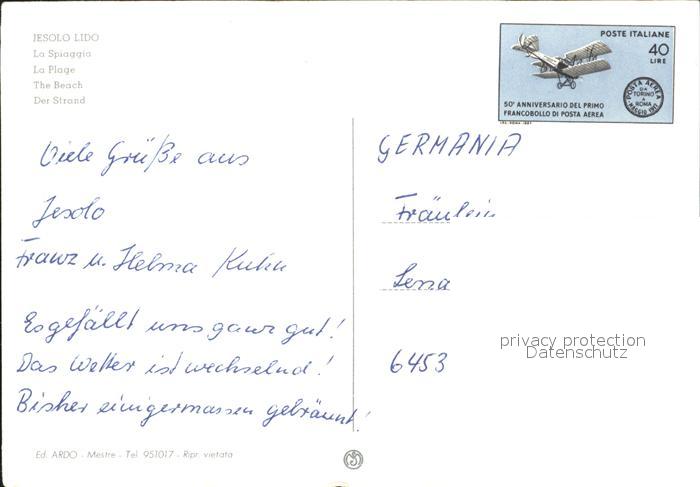 JESOLO LIDO
La Spiaggia
La Plage
The Beach
Der Strand
POSTE ITALIANE
40
LIRE
POSTA AEREA
DA
TORINO
A
ROMA
MAGGIO 1917
50° ANNIVERSARIO DEL PRIMO
FRANCOBOLLO DI POSTA AEREA
I.P.S. ROMA 1967
Viele Grüße aus
Jesolo
Franz u. Helma Kuhn
Es gefällt uns ganz gut!
Das Wetter ist wechselnd!
Bisher einigermassen gebräunt!
GERMANIA
Fräulein
6453
privacy protection
Datenschutz
Ed. ARDO - Mestre - Tel 951017 - Ripr. vietata